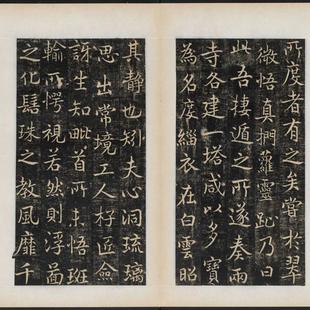 所度者有之矣嘗於翠
微悟真捫蘿靈趾乃曰
此吾棲遁之所遂奏兩
寺各建一塔咸以多寶
為名度緇衣在白雲昭
其静也矧夫心洞琉璃
思出常境工人杍匠僉
訝生知毗首所未悟班
輸所愕視若然則浮啚
之化髻珠之教風靡千